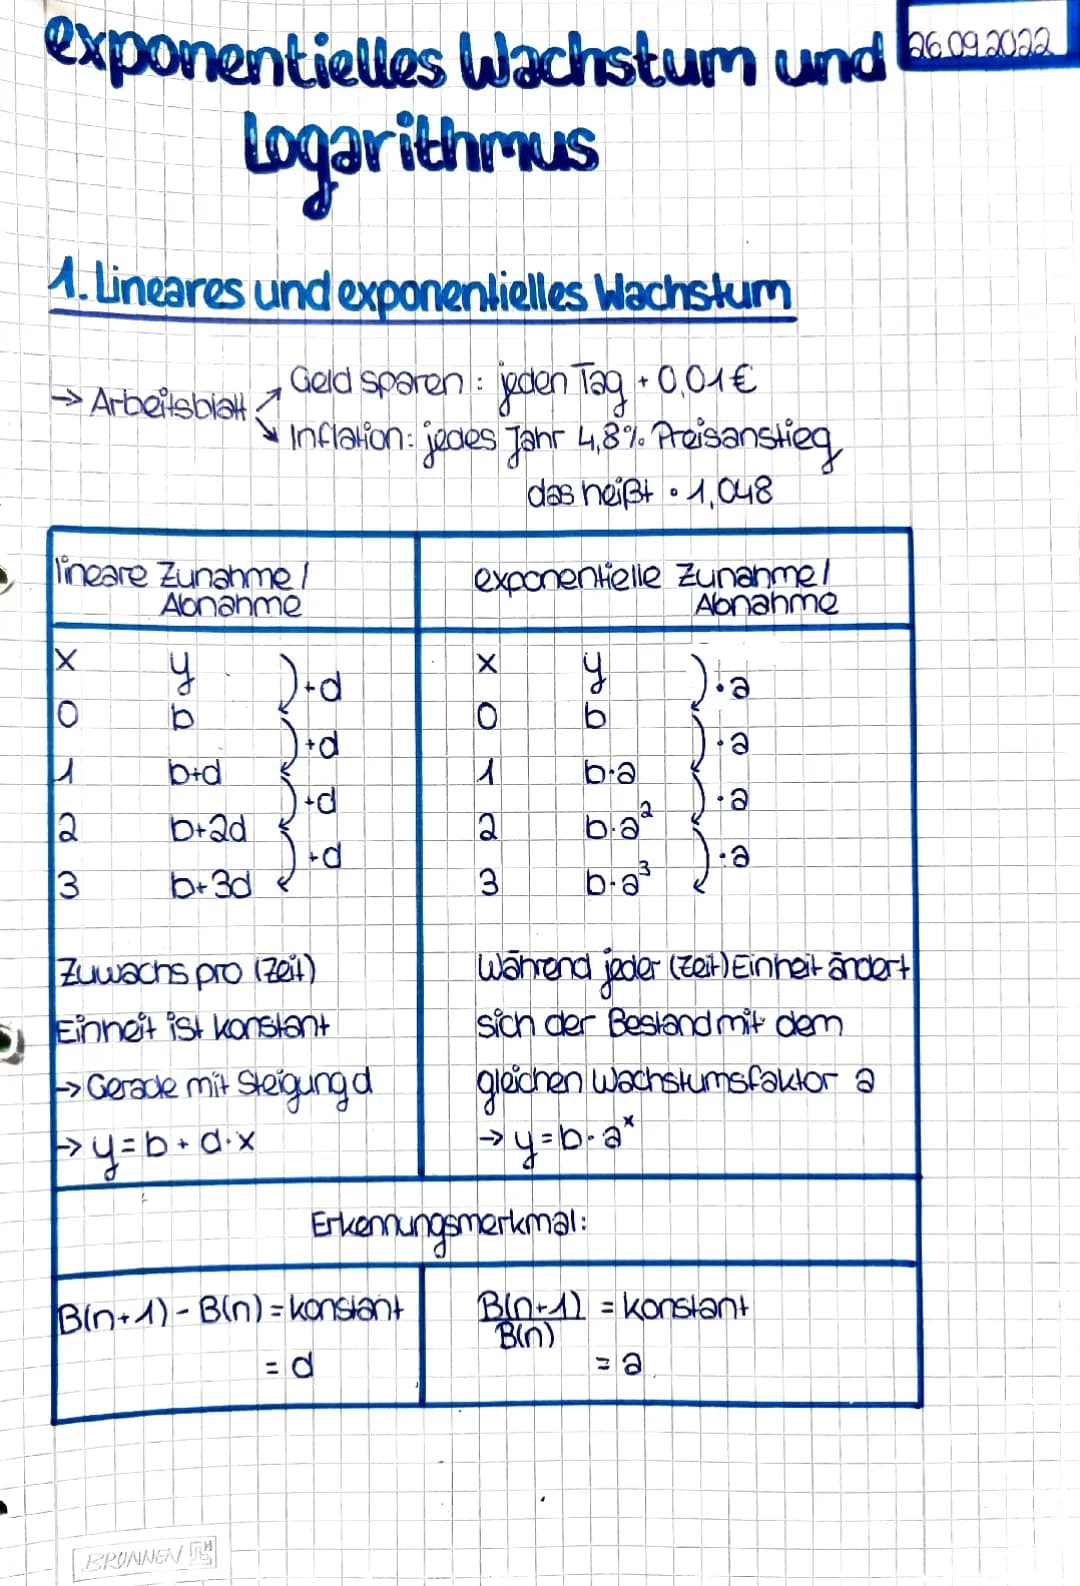 exponentielles Wachstum und
26.09.2022
Logarithmus
1. Lineares und exponentielles Wachstum
→ Arbeitsblatt
Geld sparen: jeden Tag + 0,01€
Inflation: jedes Jahr 4,8% Preisanstieg
das heißt · 1,048
lineare Zunahme /
Abnahme
x y
)+d
0 b
)+d
1 b+d
)+d
2 b+2d
)+d
3 b+3d
Zuwachs pro (Zeit)
Einheit ist konstant
→ Gerade mit Steigung d
→ y=b+d·x
exponentielle Zunahme/
Abnahme
x y
)·a
0 b
)·a
1 b·a
)·a
2 b·a²
)·a
3 b·a³
Während jeder (Zeit) Einheit ändert
sich der Bestand mit dem
gleichen Wachstumsfaktor a
→ y=b·aˣ
Erkennungsmerkmal:
B(n+1) - B(n) = konstant
= d
B(n+1) = konstant
B(n)
= a
BRUNNEN